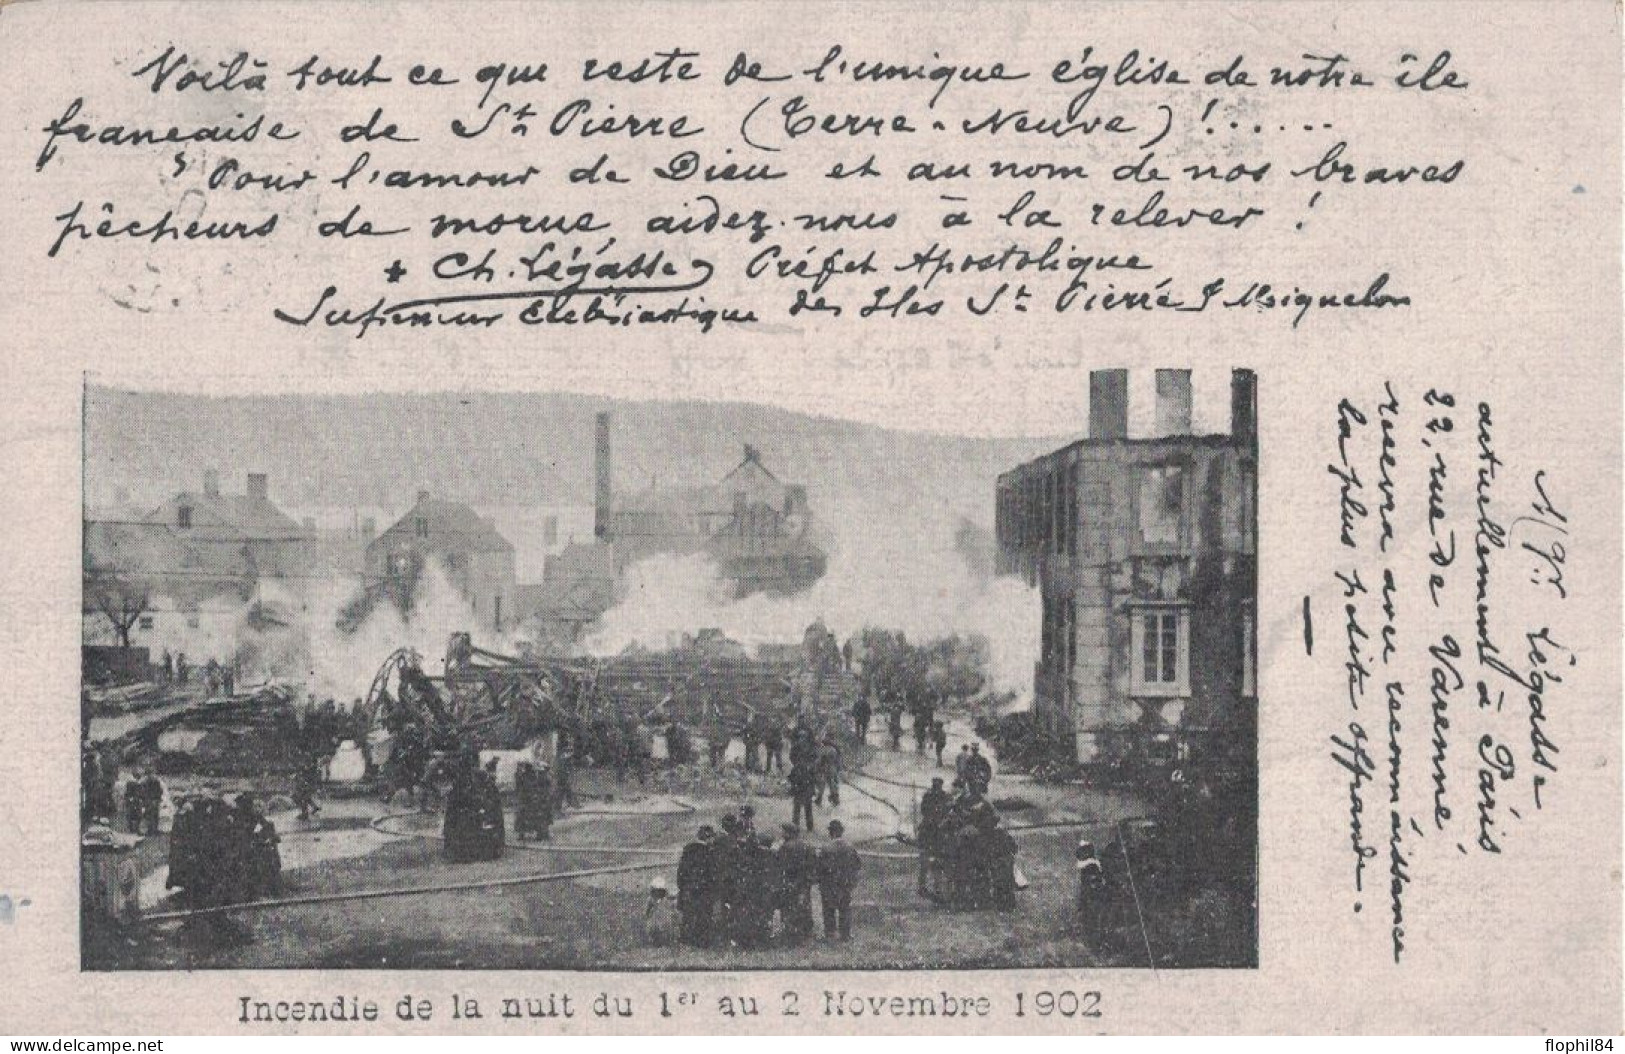 Voilà tout ce que reste de l'unique église de nôtre île
française de St Pierre (Terre-Neuve) !......
Pour l'amour de Dieu et au nom de nos braves
pêcheurs de morue, aidez-nous à la relever !
+ Ch. Légasse, Préfet Apostolique
Supérieur Ecclésiastique des Iles St Pierre & Miquelon
Mgr. Légasse
actuellement à Paris
22, rue de Varenne
recevra avec reconnaissance
la plus petite offrande.
Incendie de la nuit du 1er au 2 Novembre 1902
www.delcampe.net
flophil84